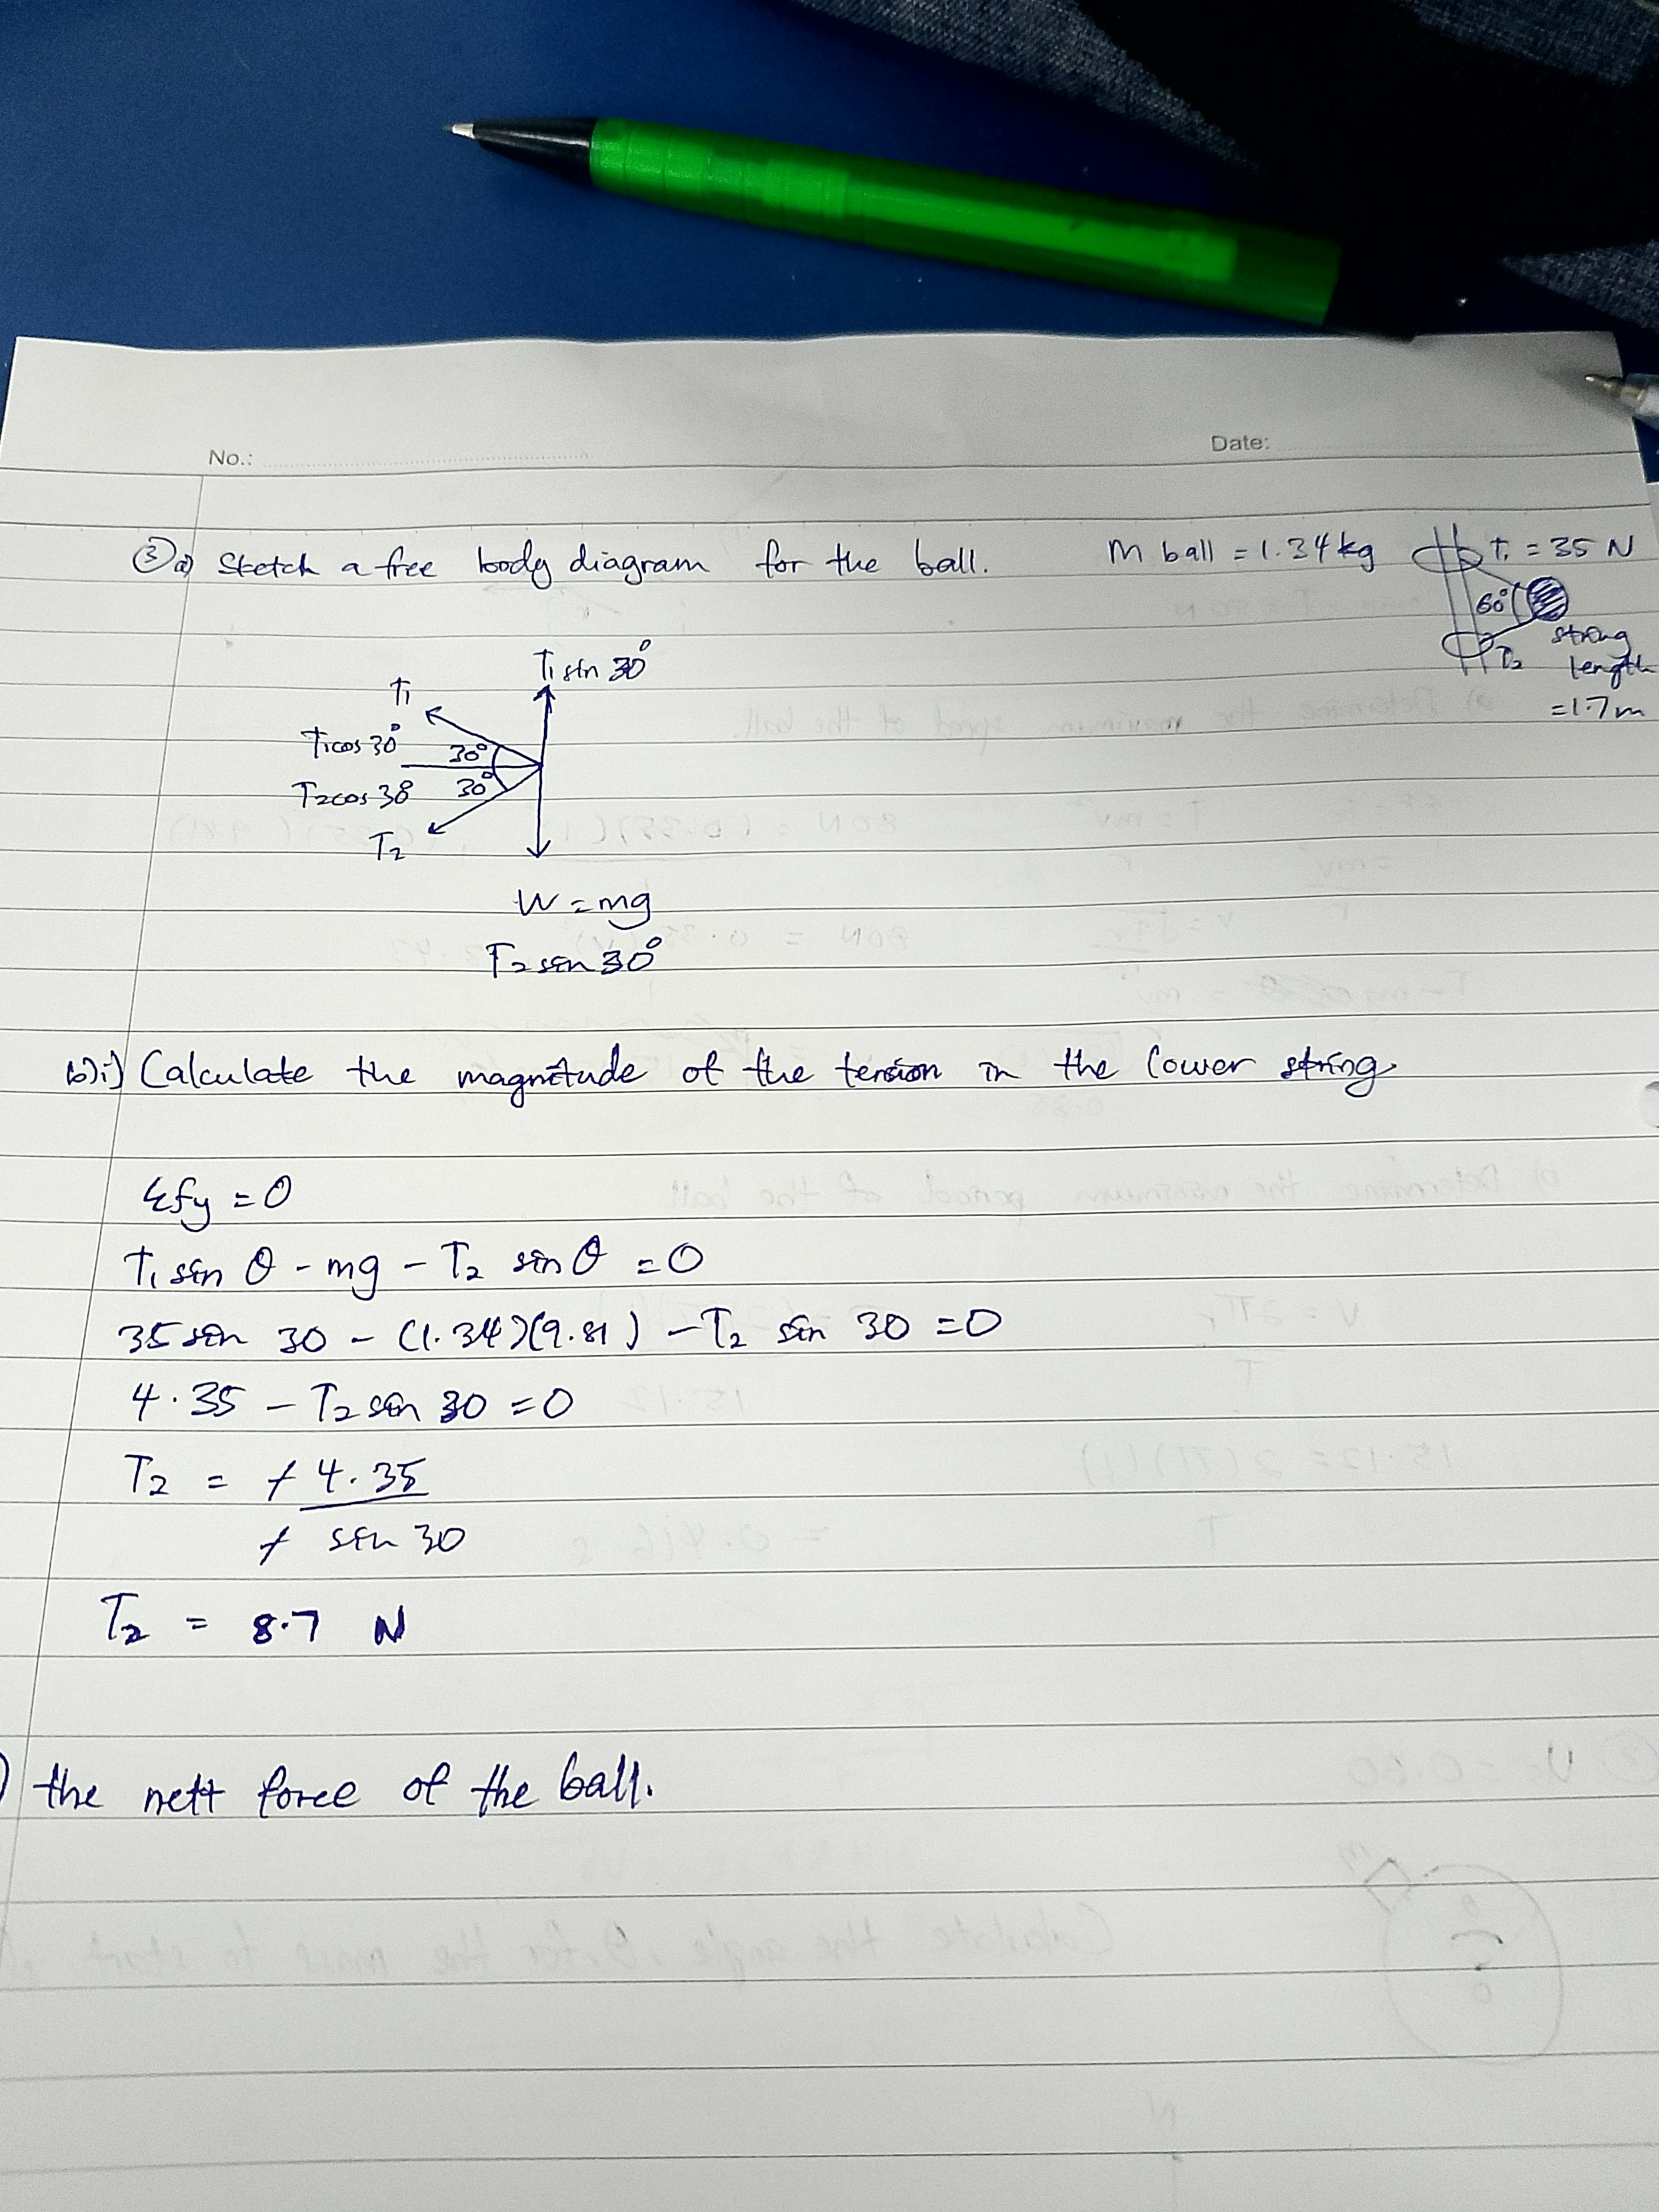 No.: Date:
③a) Sketch a free body diagram for the ball. m ball = 1.34kg T₁ = 35 N
60°
string
T₂ length
=1.7m
T₁ sin 30°
T₁
T₁cos 30° 30°
T₂cos 30 30°
T₂
W = mg
T₂ sin 30°
b)i) Calculate the magnitude of the tension in the lower string
Σfy = 0
T₁ sin θ - mg - T₂ sin θ = 0
35 sin 30 - (1.34)(9.81) - T₂ sin 30 = 0
4.35 - T₂ sin 30 = 0
T₂ = + 4.35
+ sin 30
T₂ = 8.7 N
) the nett force of the ball.